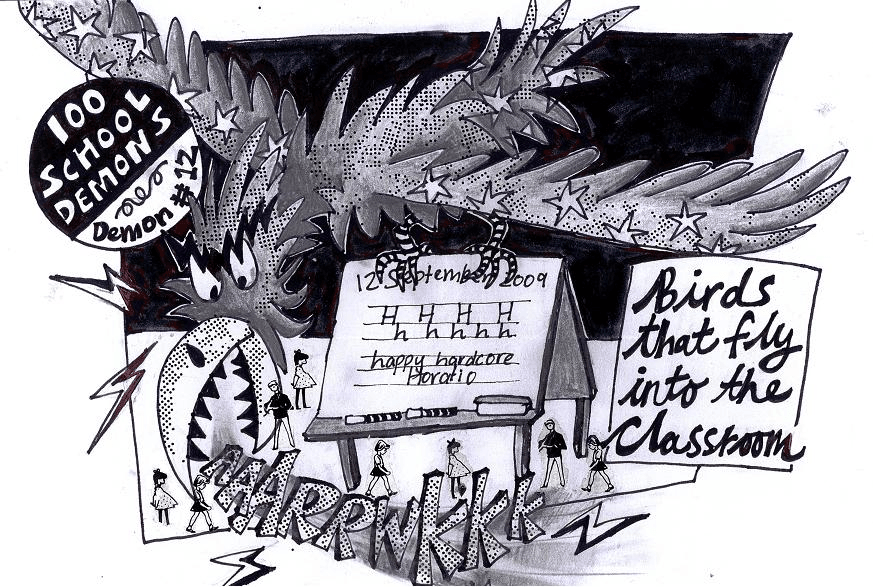 100
SCHOOL
DEMONS
Demon #12
12 September 2009
H H H H
h h h h h
happy hardcore
Horatio
Birds
that fly
into the
Classroom
AAAARRWKKK